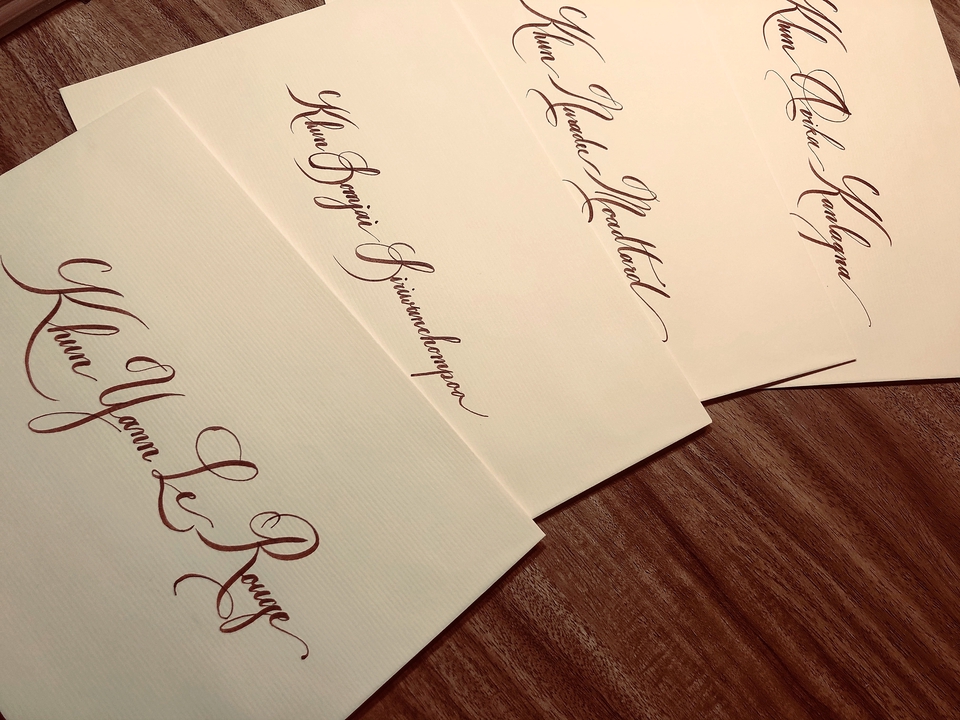 Khun Yann Le Rouge
Khun Somjai Siriwanchompoo
Khun Nuradu Moadtard
Khun Avika Kanlagna